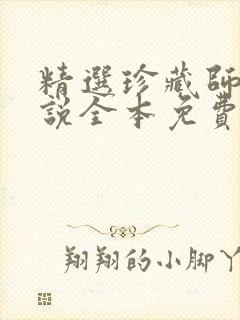 精選珍藏師
說全本免費
翔翔的小腳丫